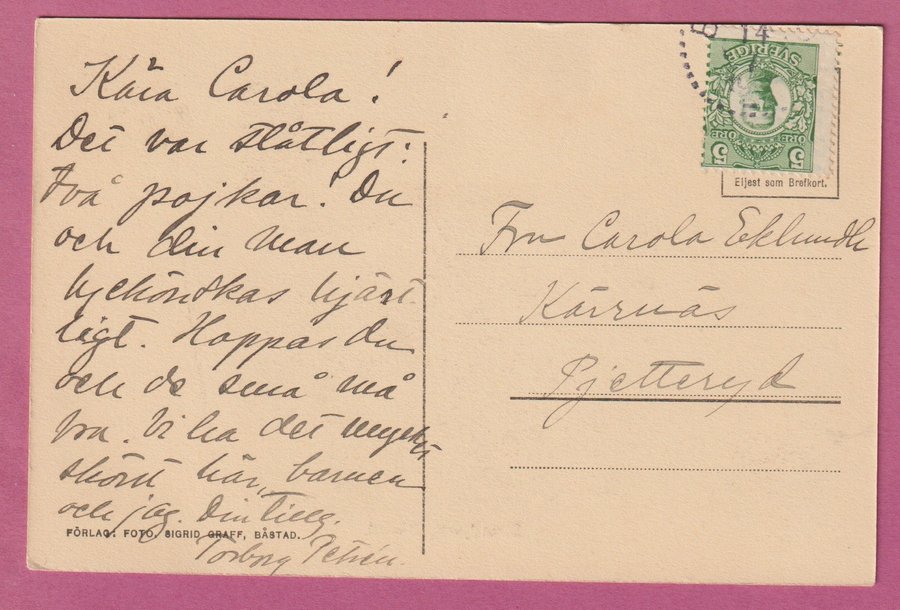 Kära Carola!
Det var ståtligt:
två pojkar! Du
och din man
lyckönskas hjärt-
ligt. Hoppas du
och de små må
bra. Vi ha det mycket
skönt här, barnen
och jag. Din tillg.
Torborg Petrén.
FÖRLAG: FOTO. SIGRID GRAFF, BÅSTAD.
14
SVERIGE
5 ÖRE ÖRE 5
Eljest som Brefkort.
Fru Carola Eklundh
Kärrnäs
Pjetteryd